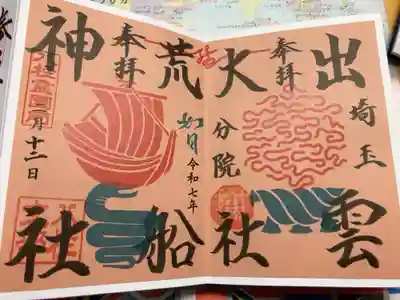 出雲
埼玉
奉拝
大社
分院
令和七年
如月
荒船
奉拝
神社
月十二日